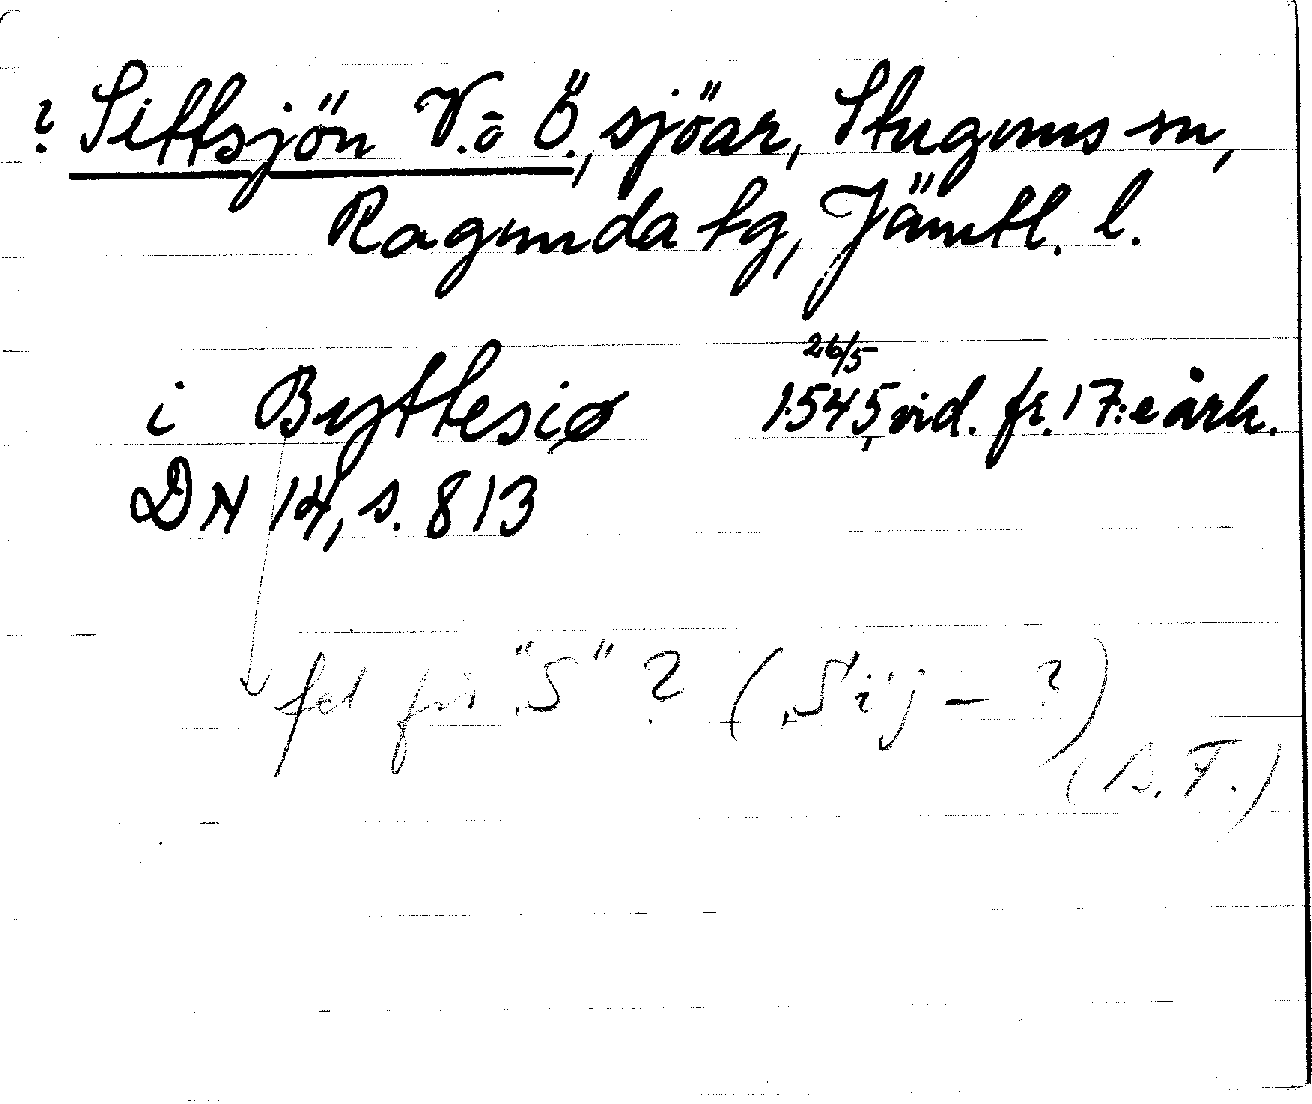 ? Sittsjön V. o Ö., sjöar, Stuguns sn,
Ragunda tg, Jämtl. l.
26/5
i Byttesiø 1545, vid. fr. 17:e årh.
DN 14, s. 813
fel för "S" ? (Sij - ?)
(B.F.)